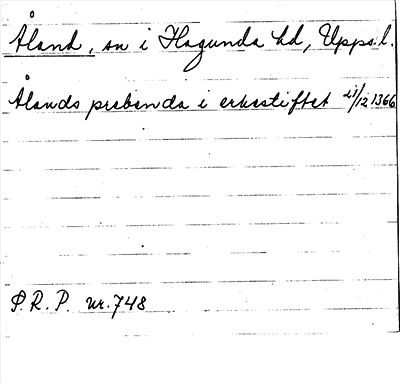 Åland, sn i Hagunda hd, Upps. l.
Ålands prebenda i erkestiftet 21/12 1366
P.R.P. nr. 748